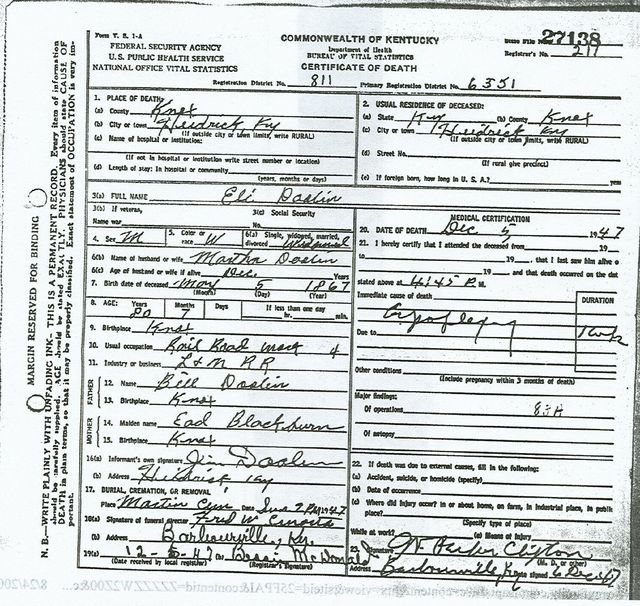 Form V. S. 1-A
FEDERAL SECURITY AGENCY
U. S. PUBLIC HEALTH SERVICE
NATIONAL OFFICE VITAL STATISTICS
COMMONWEALTH OF KENTUCKY
Department of Health
BUREAU OF VITAL STATISTICS
CERTIFICATE OF DEATH
27138
Registrar's No. 211
Registration District No. 811
Primary Registration District No. 6351
MARGIN RESERVED FOR BINDING
N. B.—WRITE PLAINLY WITH UNFADING INK—THIS IS A PERMANENT RECORD. Every item of information
should be carefully supplied. AGE should be stated EXACTLY. PHYSICIANS should state CAUSE OF
DEATH in plain terms, so that it may be properly classified. Exact statement of OCCUPATION is very im-
portant.
1. PLACE OF DEATH:
(a) County Knox
(b) City or town Heidrick Ky
(If outside city or town limits, write RURAL)
(c) Name of hospital or institution:
(If not in hospital or institution write street number or location)
(d) Length of stay: In hospital or community
(years, months or days)
2. USUAL RESIDENCE OF DECEASED:
(a) State Ky (b) County Knox
(c) City or town Heidrick Ky
(If outside city or town limits, write RURAL)
(d) Street No.
(If rural give precinct)
(e) If foreign born, how long in U. S. A.? yr
3(a) FULL NAME Eli Doolin
3(b) If veteran,
Name war
3(c) Social Security
No.
4. Sex M
5. Color or
race W
6(a) Single, widowed, married,
divorced Widowed
6(b) Name of husband or wife Martha Doolin
6(c) Age of husband or wife if alive Dec. Years
7. Birth date of deceased May 5 1867
(Month) (Day) (Year)
8. AGE: Years Months Days If less than one day
80 7 hr. min.
9. Birthplace Knox
10. Usual occupation Rail Road
11. Industry or business L & N RR
FATHER
12. Name Bill Doolin
13. Birthplace Knox
MOTHER
14. Maiden name Ead Blackburn
15. Birthplace Knox
16(a) Informant's own signature Jim Doolin
(b) Address Heidrick Ky
17. BURIAL, CREMATION, OR REMOVAL
Place Martin Cem Date 1947
18(a) Signature of funeral director Fred W.
(b) Address Barbourville, Ky.
19(a) 12-5-47 (b) McDonald
(Date received by local registrar) (Registrar's Signature)
MEDICAL CERTIFICATION
20. DATE OF DEATH Dec 5 1947
21. I hereby certify that I attended the deceased from 19
to 19 , that I last saw him alive o
19 and that death occurred on the dat
stated above at 4:45 P.M.
Immediate cause of death
DURATION
Apoplexy
Due to
1 wk
Other conditions
(Include pregnancy within 3 months of death)
Major findings:
Of operations
83A
Of autopsy
22. If death was due to external causes, fill in the following:
(a) Accident, suicide, or homicide (specify)
(b) Date of occurrence
(c) Where did injury occur? in or about home, on farm, in industrial place, in public
place?
(Specify type of place)
While at work? (e) Means of injury
23. Signature Parker Clifton
(M. D. or other)
Address Barbourville, Ky signed 6 Dec 47